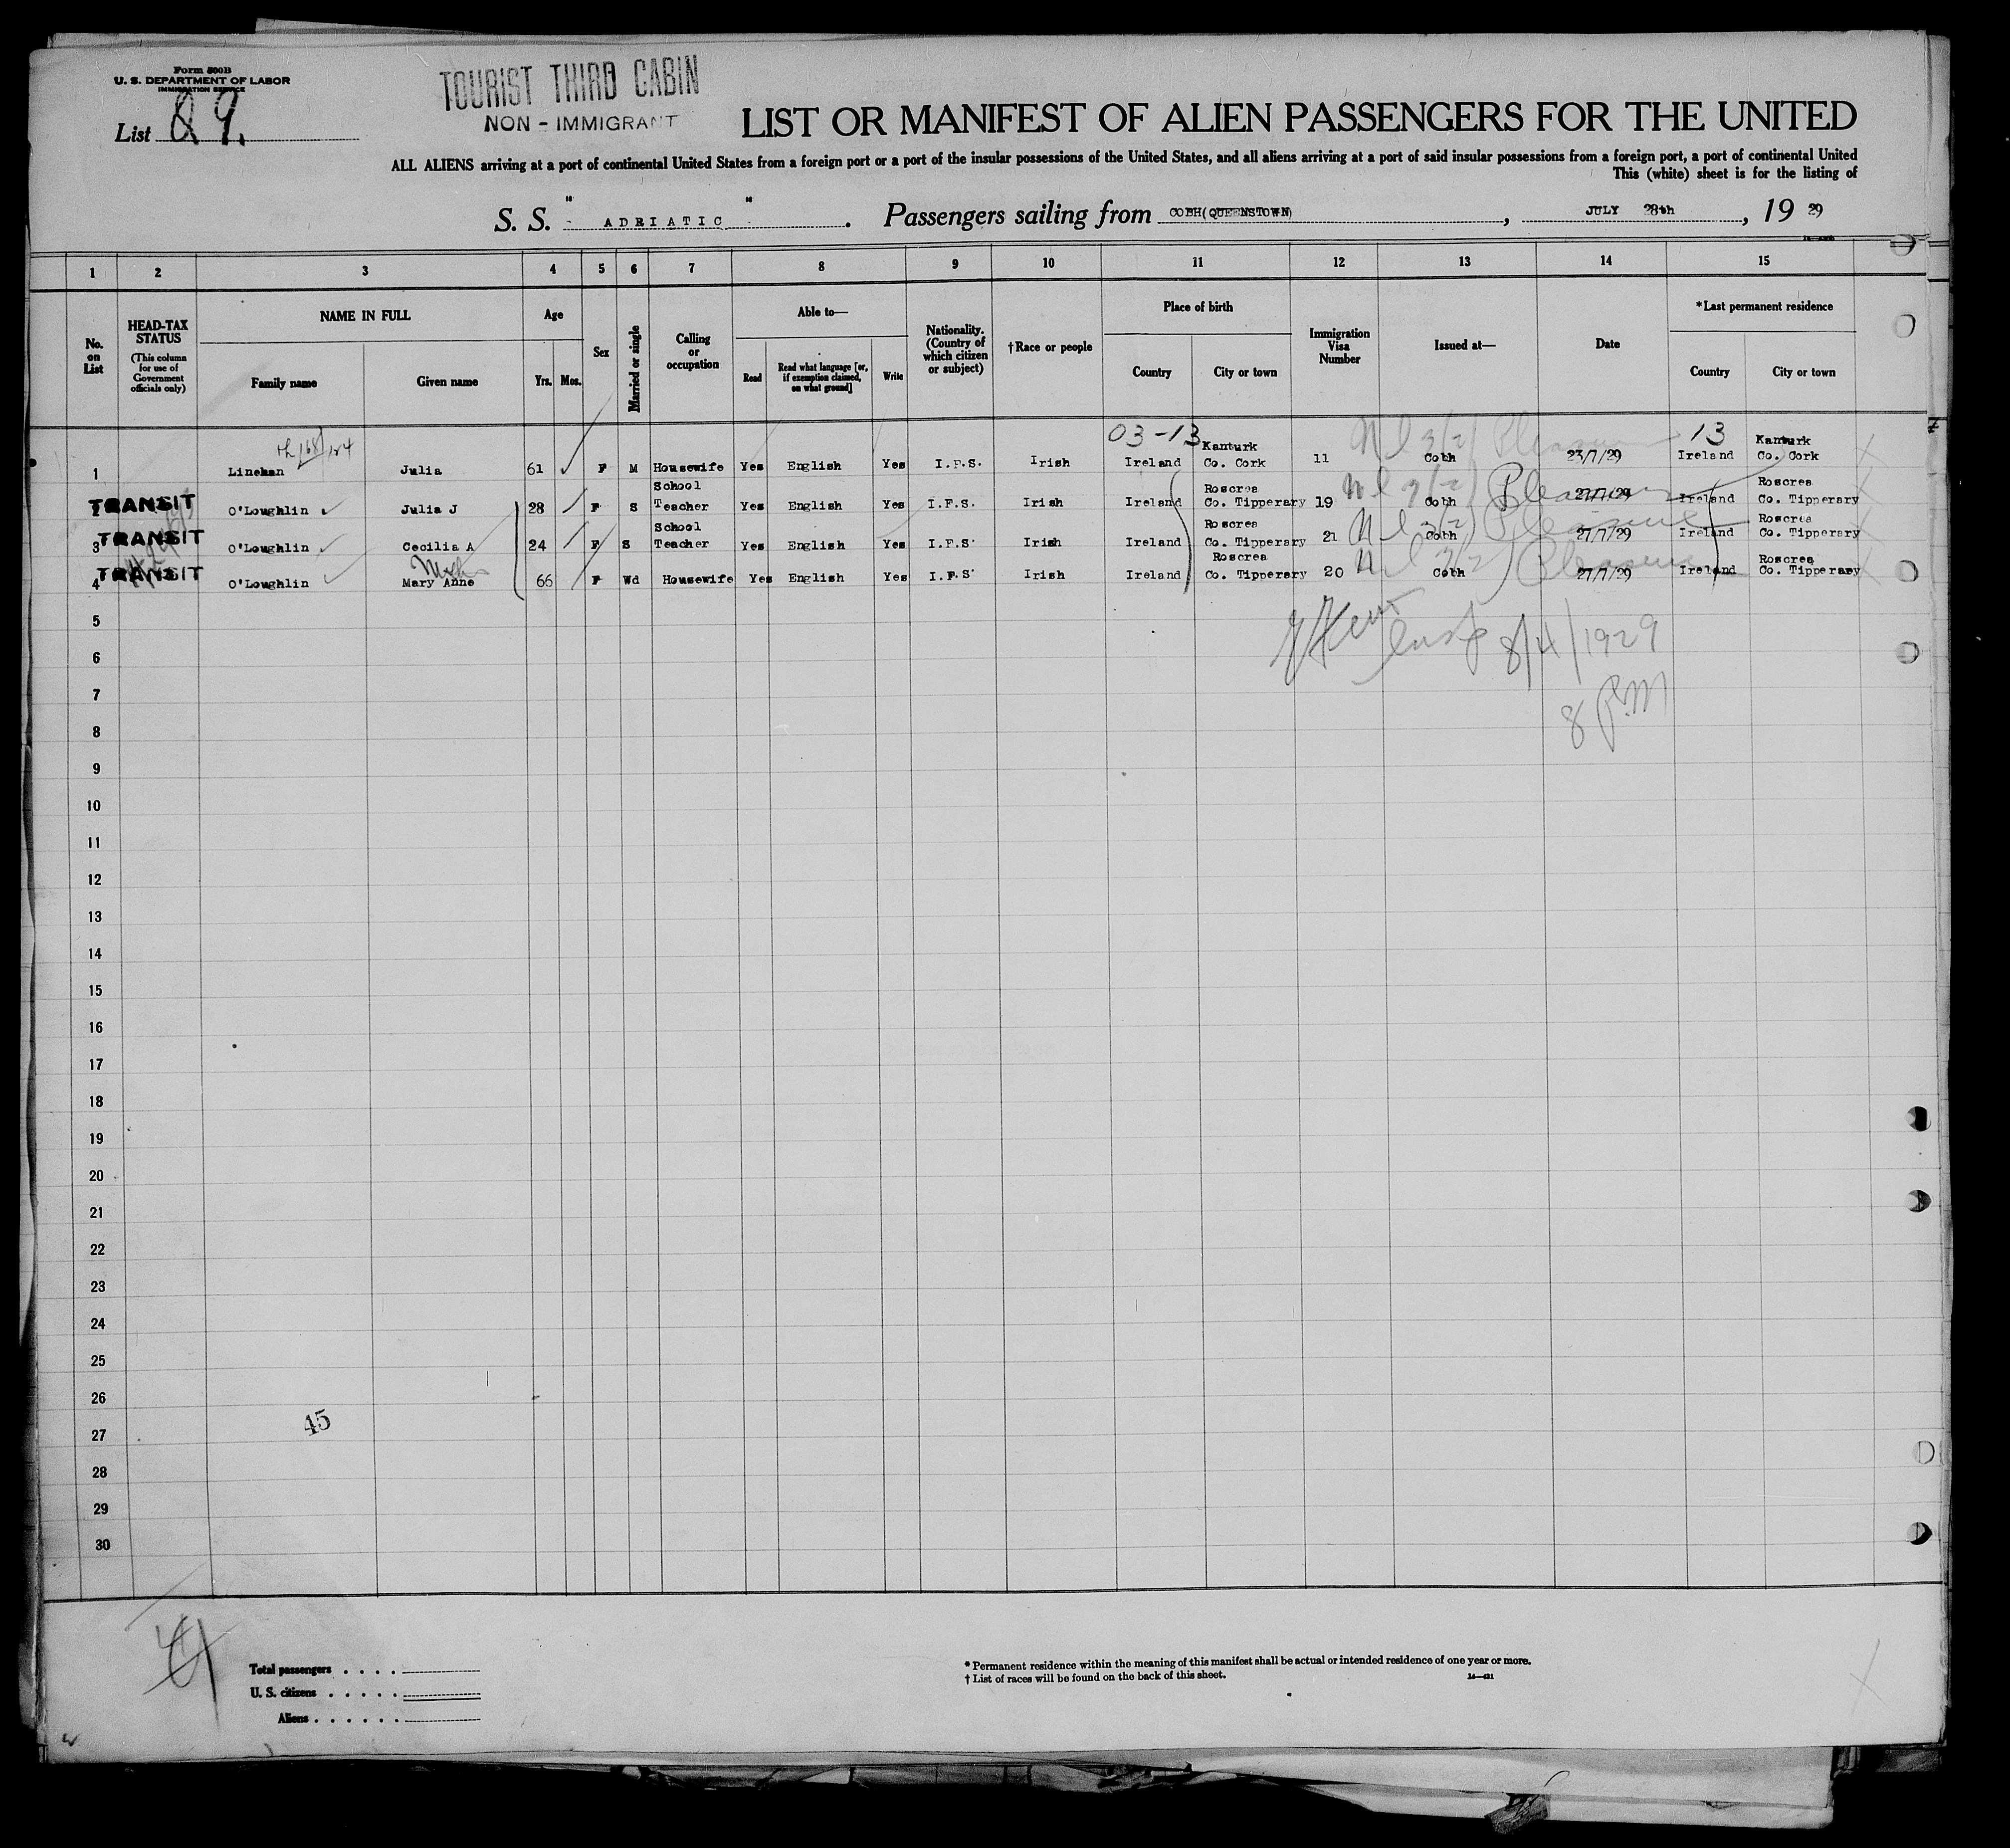 Form 500B
U. S. DEPARTMENT OF LABOR
IMMIGRATION SERVICE
List 89.
TOURIST THIRD CABIN
NON - IMMIGRANT
LIST OR MANIFEST OF ALIEN PASSENGERS FOR THE UNITED
ALL ALIENS arriving at a port of continental United States from a foreign port or a port of the insular possessions of the United States, and all aliens arriving at a port of said insular possessions from a foreign port, a port of continental United
This (white) sheet is for the listing of
S. S. " ADRIATIC ". Passengers sailing from COBH(QUEENSTOWN), JULY 28th, 19 29
1 2 3 4 5 6 7 8 9 10 11 12 13 14 15
No. on List
HEAD-TAX STATUS (This column for use of Government officials only)
NAME IN FULL
Family name Given name
Age
Yrs. Mos.
Sex
Married or single
Calling or occupation
Able to—
Read Read what language [or, if exemption claimed, on what ground] Write
Nationality. (Country of which citizen or subject)
†Race or people
Place of birth
Country City or town
Immigration Visa Number
Issued at—
Date
*Last permanent residence
Country City or town
03-13 13
1 Linehan Julia 61 F M Housewife Yes English Yes I.F.S. Irish Ireland Kanturk Co. Cork 11 Cobh 23/7/29 Ireland Kanturk Co. Cork
TRANSIT 2 O'Loughlin Julia J 28 F S School Teacher Yes English Yes I.F.S. Irish Ireland Roscrea Co. Tipperary 19 Cobh Pleasure 27/7/29 Ireland Roscrea Co. Tipperary
TRANSIT 3 O'Loughlin Cecilia A 24 F S School Teacher Yes English Yes I.F.S. Irish Ireland Roscrea Co. Tipperary 21 Cobh Pleasure 27/7/29 Ireland Roscrea Co. Tipperary
TRANSIT 4 O'Loughlin Mary Anne 66 F Wd Housewife Yes English Yes I.F.S. Irish Ireland Roscrea Co. Tipperary 20 Cobh Pleasure 27/7/29 Ireland Roscrea Co. Tipperary
5
6
8/4/1929
7
8 P.M
8
9
10
11
12
13
14
15
16
17
18
19
20
21
22
23
24
25
26
45
27
28
29
30
Total passengers
U. S. citizens
Aliens
* Permanent residence within the meaning of this manifest shall be actual or intended residence of one year or more.
† List of races will be found on the back of this sheet.